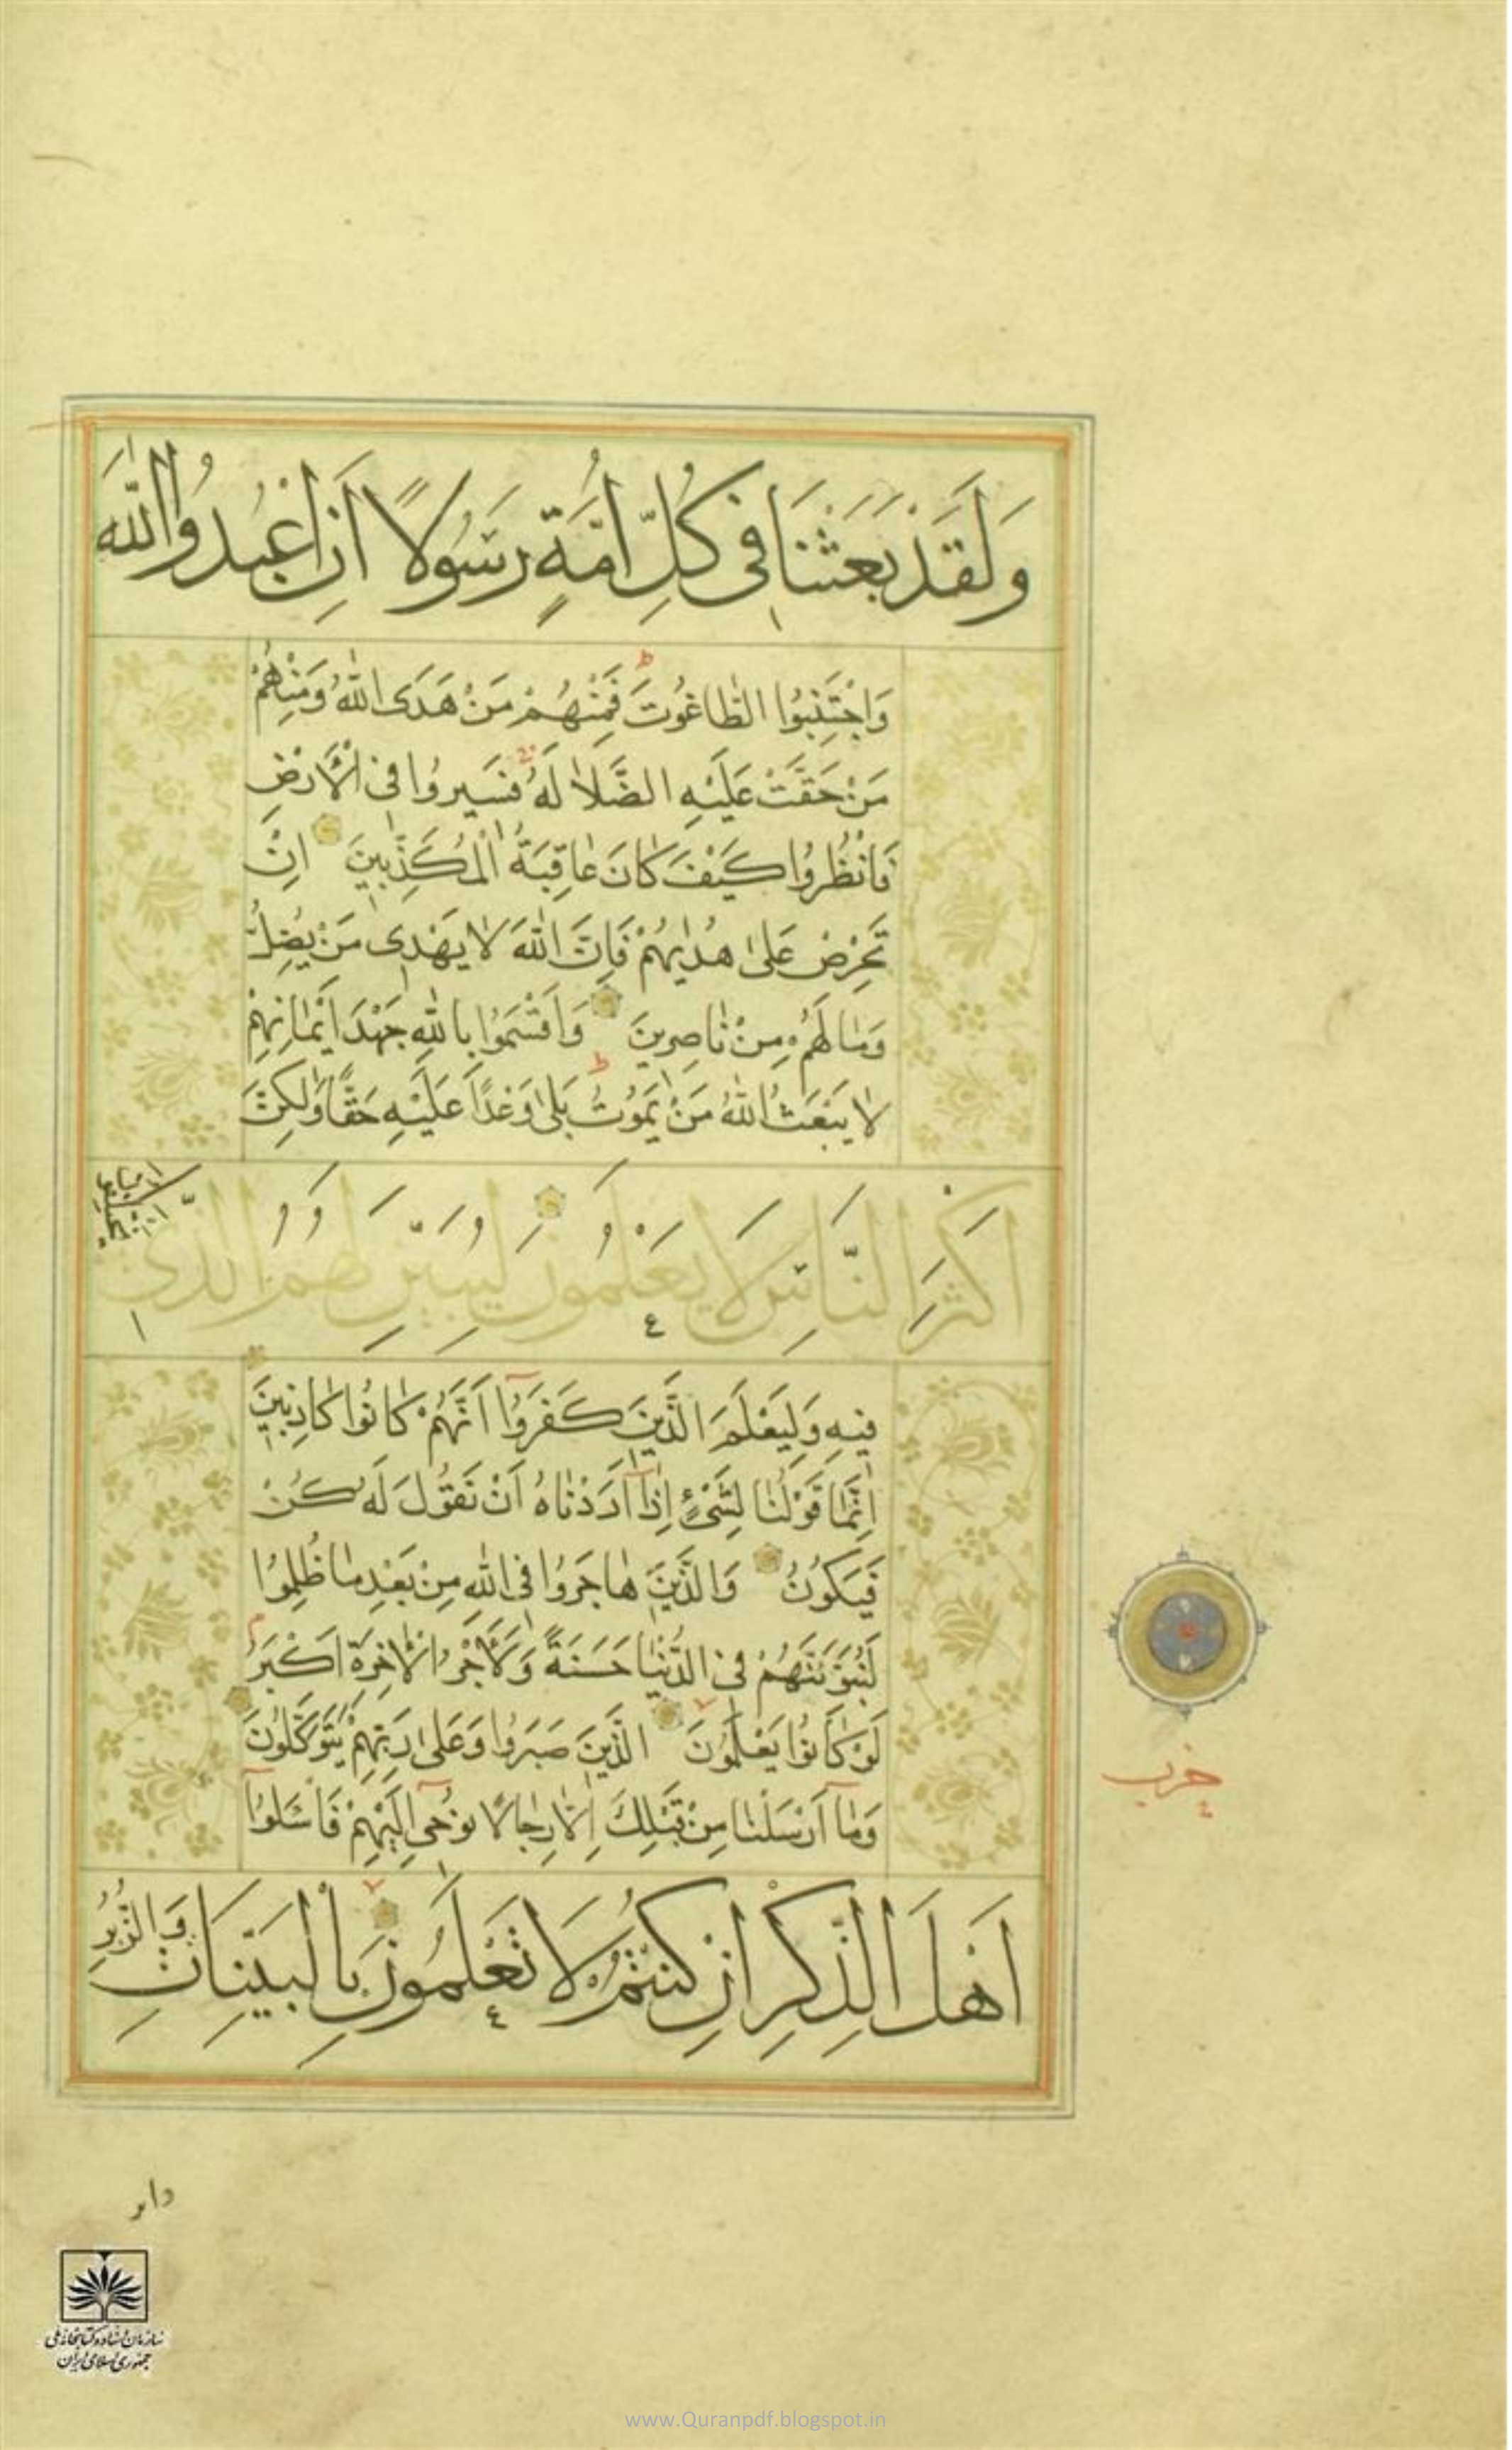 وَلَقَدْ بَعَثْنَا فِى كُلِّ اُمَّةٍ رَسُولًا اَنِ اعْبُدُوا اللّٰهَ
وَاجْتَنِبُوا الطَّاغُوتَ فَمِنْهُمْ مَنْ هَدَى اللّٰهُ وَمِنْهُمْ
مَنْ حَقَّتْ عَلَيْهِ الضَّلَالَةُ فَسِيرُوا فِى الْاَرْضِ
فَانْظُرُوا كَيْفَ كَانَ عَاقِبَةُ الْمُكَذِّبِينَ اِنْ
تَحْرِصْ عَلٰى هُدٰيهُمْ فَاِنَّ اللّٰهَ لَا يَهْدِى مَنْ يُضِلُّ
وَمَا لَهُمْ مِنْ نَاصِرِينَ وَاَقْسَمُوا بِاللّٰهِ جَهْدَ اَيْمَانِهِمْ
لَا يَبْعَثُ اللّٰهُ مَنْ يَمُوتُ بَلٰى وَعْدًا عَلَيْهِ حَقًّا وَلٰكِنَّ
اَكْثَرَ النَّاسِ لَا يَعْلَمُونَ لِيُبَيِّنَ لَهُمُ الَّذِى
يَخْتَلِفُونَ
فِيهِ وَلِيَعْلَمَ الَّذِينَ كَفَرُوا اَنَّهُمْ كَانُوا كَاذِبِينَ
اِنَّمَا قَوْلُنَا لِشَىْءٍ اِذَا اَرَدْنَاهُ اَنْ نَقُولَ لَهُ كُنْ
فَيَكُونُ وَالَّذِينَ هَاجَرُوا فِى اللّٰهِ مِنْ بَعْدِ مَا ظُلِمُوا
لَنُبَوِّئَنَّهُمْ فِى الدُّنْيَا حَسَنَةً وَلَاَجْرُ الْاٰخِرَةِ اَكْبَرُ
لَوْ كَانُوا يَعْلَمُونَ الَّذِينَ صَبَرُوا وَعَلٰى رَبِّهِمْ يَتَوَكَّلُونَ
وَمَا اَرْسَلْنَا مِنْ قَبْلِكَ اِلَّا رِجَالًا نُوحِى اِلَيْهِمْ فَاسْئَلُوا
اَهْلَ الذِّكْرِ اِنْ كُنْتُمْ لَا تَعْلَمُونَ بِالْبَيِّنَاتِ وَالزُّبُرِ
حزب
سازمان اسناد و کتابخانه ملی
جمهوری اسلامی ایران
www.Quranpdf.blogspot.in